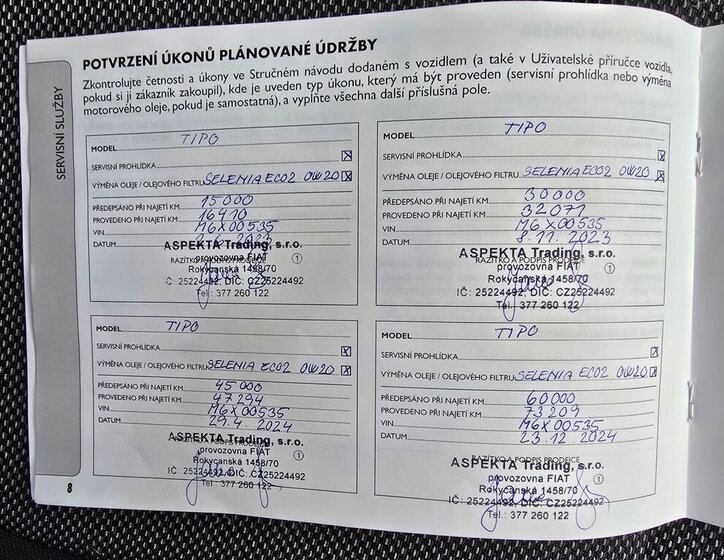 SERVISNÍ SLUŽBY
POTVRZENÍ ÚKONŮ PLÁNOVANÉ ÚDRŽBY
Zkontrolujte četnosti a úkony ve Stručném návodu dodaném s vozidlem (a také v Uživatelské příručce vozidla,
pokud si ji zákazník zakoupil), kde je uveden typ úkonu, který má být proveden (servisní prohlídka nebo výměna
motorového oleje, pokud je samostatná), a vyplňte všechna další příslušná pole.
MODEL TIPO
SERVISNÍ PROHLÍDKA X
VÝMĚNA OLEJE / OLEJOVÉHO FILTRU SELENIA ECO2 0W20 X
PŘEDEPSÁNO PŘI NAJETÍ KM 15 000
PROVEDENO PŘI NAJETÍ KM 16410
VIN M6X00535
DATUM 2023
RAZÍTKO A PODPIS PRODEJCE
ASPEKTA Trading, s.r.o.
provozovna FIAT 1
Rokycanská 1458/70
IČ: 25224492, DIČ: CZ25224492
Tel.: 377 260 122
MODEL TIPO
SERVISNÍ PROHLÍDKA X
VÝMĚNA OLEJE / OLEJOVÉHO FILTRU SELENIA ECO2 0W20 X
PŘEDEPSÁNO PŘI NAJETÍ KM 30000
PROVEDENO PŘI NAJETÍ KM 32071
VIN M6X00535
DATUM 8.11.2023
ASPEKTA Trading, s.r.o.
RAZÍTKO A PODPIS PRODEJCE
provozovna FIAT 1
Rokycanská 1458/70
IČ: 25224492, DIČ: CZ25224492
Tel.: 377 260 122
MODEL TIPO
SERVISNÍ PROHLÍDKA X
VÝMĚNA OLEJE / OLEJOVÉHO FILTRU SELENIA ECO2 0W20 X
PŘEDEPSÁNO PŘI NAJETÍ KM 45 000
PROVEDENO PŘI NAJETÍ KM 47294
VIN M6X00535
DATUM 29.4.2024
ASPEKTA Trading, s.r.o.
RAZÍTKO A PODPIS PRODEJCE
provozovna FIAT 1
Rokycanská 1458/70
IČ: 25224492, DIČ: CZ25224492
Tel.: 377 260 122
MODEL TIPO
SERVISNÍ PROHLÍDKA X
VÝMĚNA OLEJE / OLEJOVÉHO FILTRU SELENIA ECO2 0W20 X
PŘEDEPSÁNO PŘI NAJETÍ KM 60000
PROVEDENO PŘI NAJETÍ KM 73209
VIN M6X00535
DATUM 23.12.2024
RAZÍTKO A PODPIS PRODEJCE
ASPEKTA Trading, s.r.o.
provozovna FIAT 1
Rokycanská 1458/70
IČ: 25224492, DIČ: CZ25224492
Tel.: 377 260 122
8